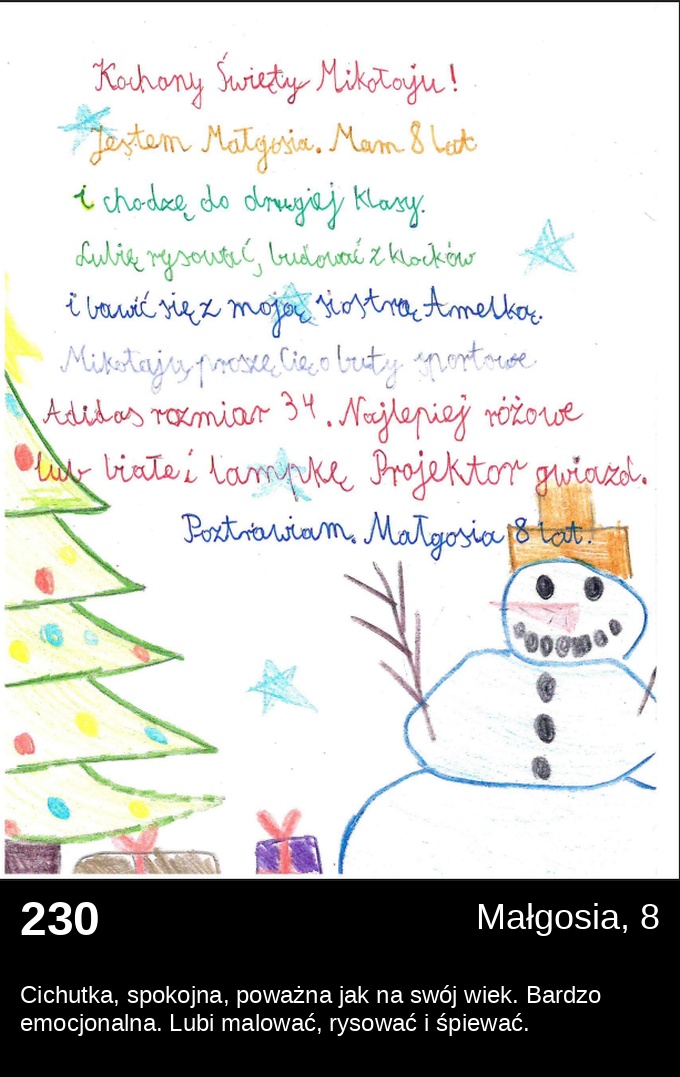 Kochany Święty Mikołaju!
Jestem Małgosia. Mam 8 lat
i chodzę do drugiej klasy.
Lubię rysować, budować z klocków
i bawić się z moją siostrą Amelką.
Mikołaju, proszę Cię o buty sportowe
Adidas rozmiar 34. Najlepiej różowe
lub białe i lampkę Projektor gwiazd.
Poztrawiam. Małgosia 8 lat.
230
Małgosia, 8
Cichutka, spokojna, poważna jak na swój wiek. Bardzo
emocjonalna. Lubi malować, rysować i śpiewać.